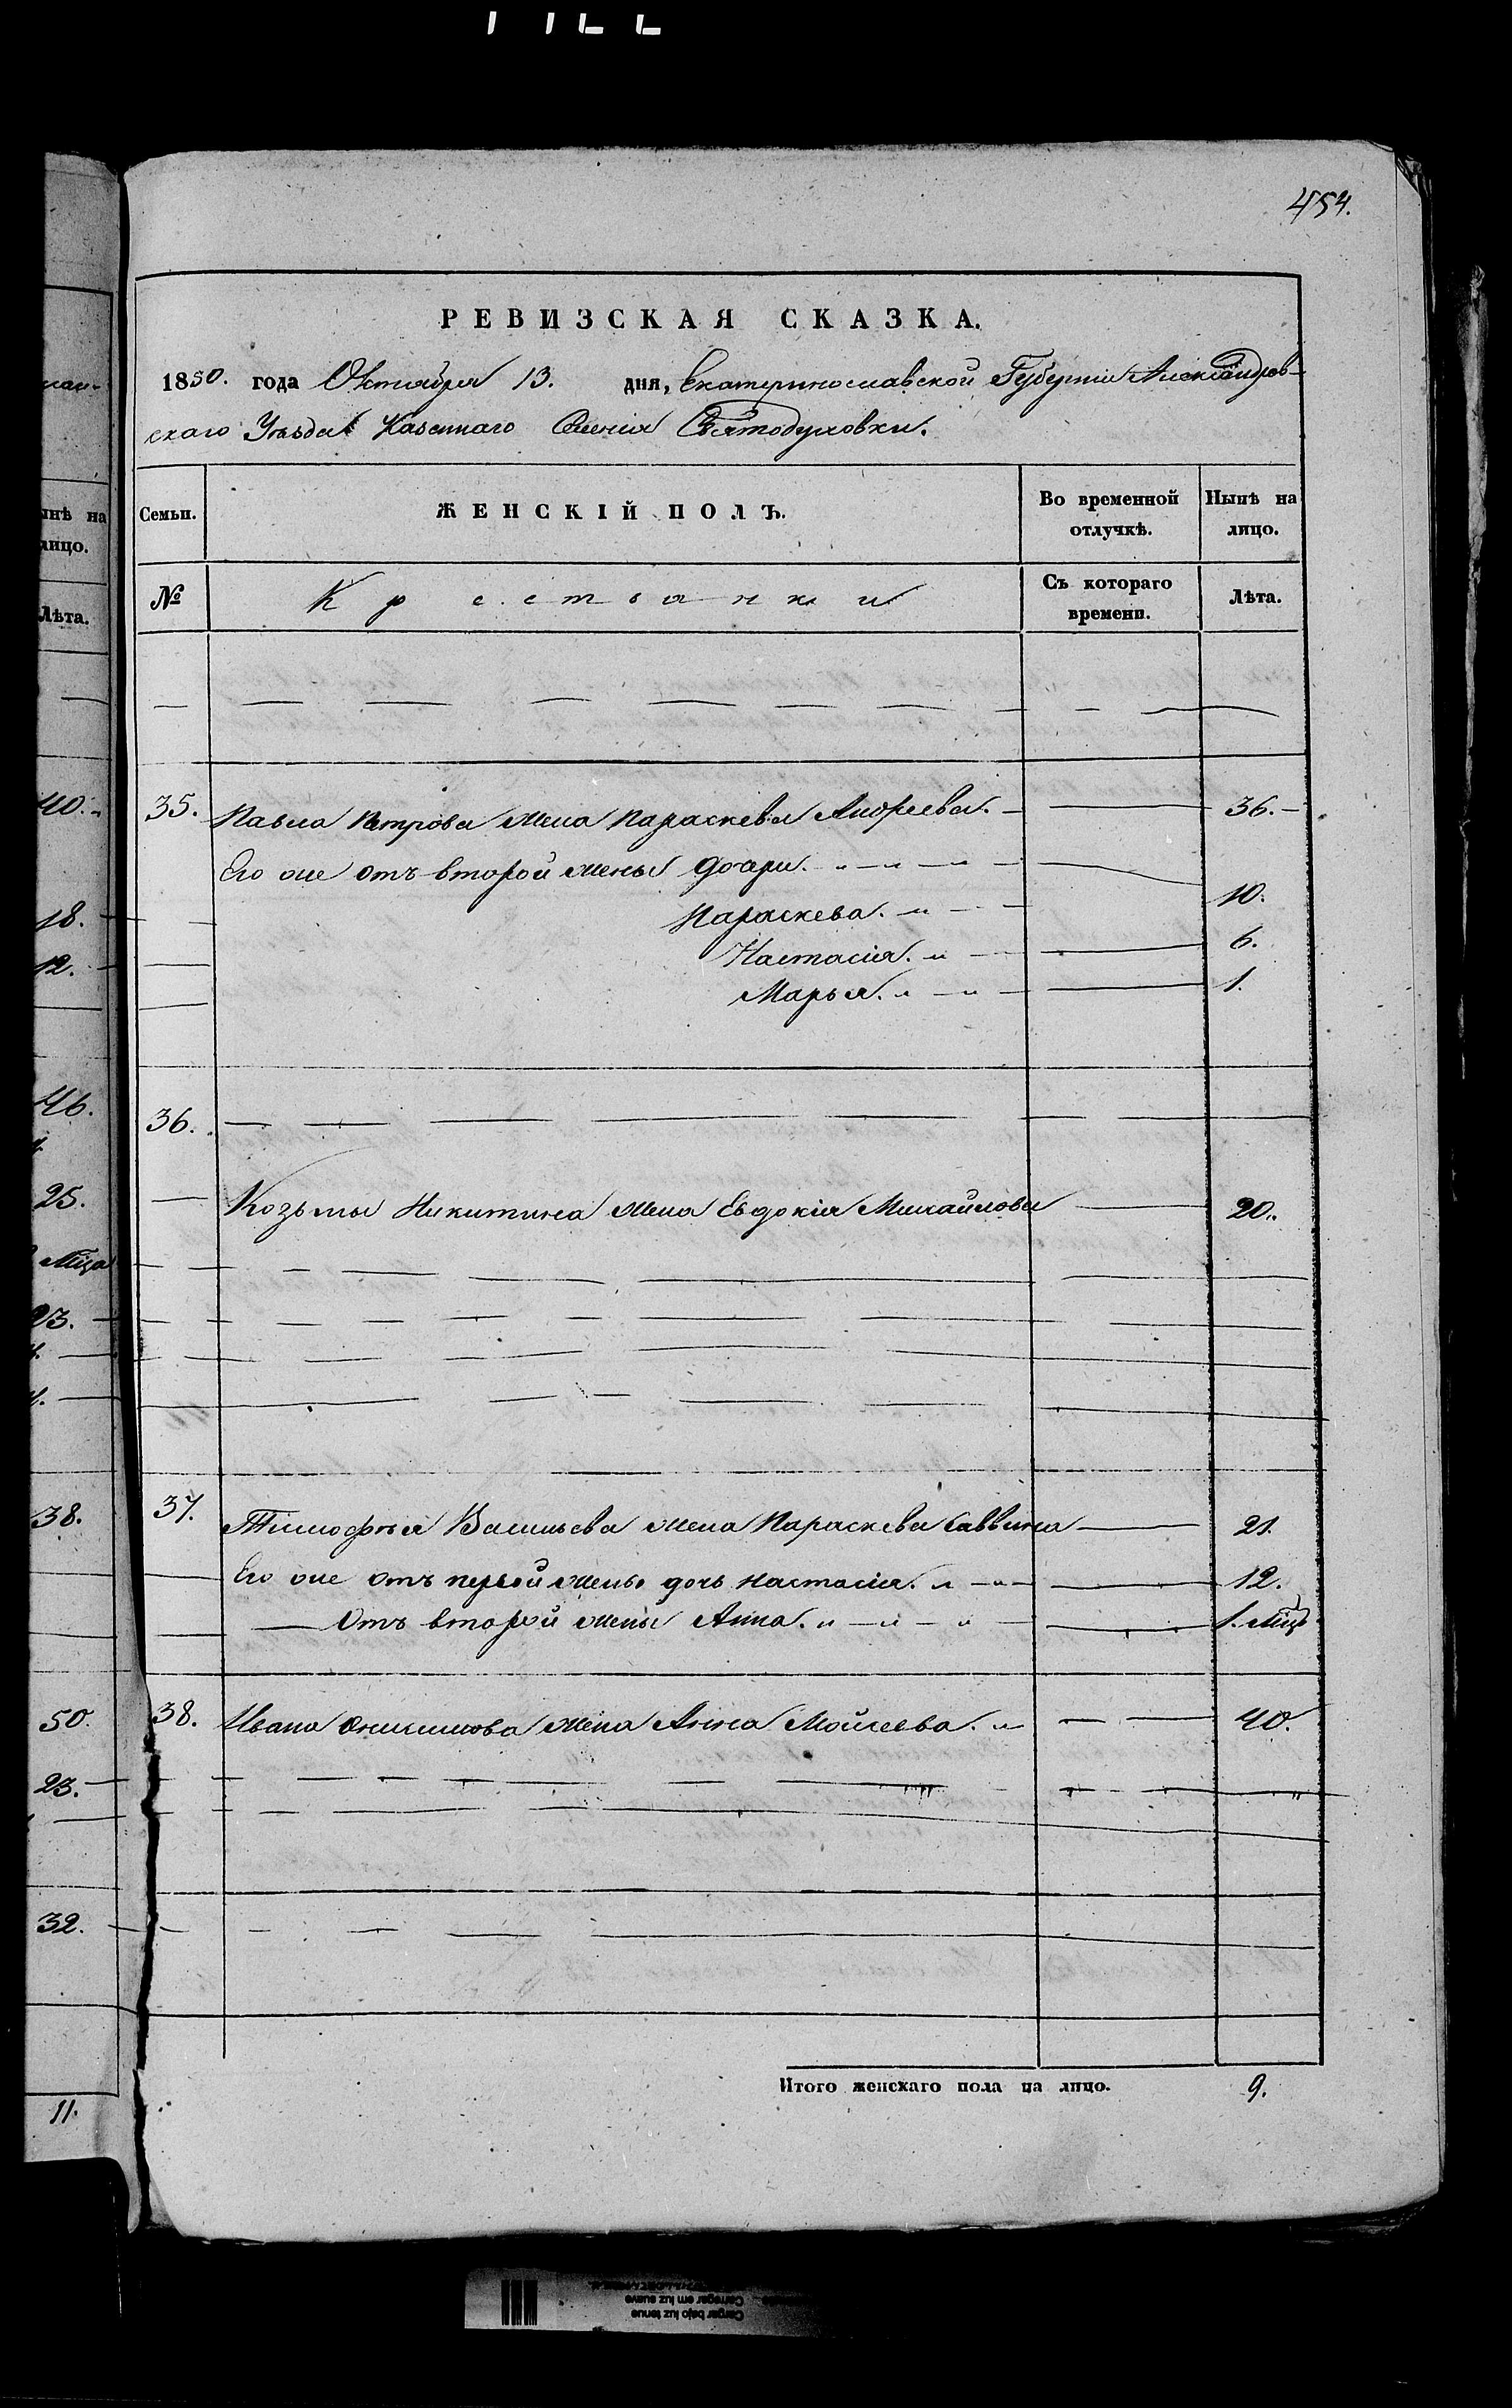 454.
РЕВИЗСКАЯ СКАЗКА.
1850. года Октября 13. дня, Екатеринославской Губерніи Александров-
скаго Уѣзда Казеннаго Селенія Святодуховки.
Семьи.
ЖЕНСКІЙ ПОЛЪ.
Во временной отлучкѣ.
Нынѣ на лицо.
№
Крестьянки
Съ котораго времени.
Лѣта.
35. Павла Петрова жена Параскева Андреева. 36.
Его же отъ второй жены дочери.
Параскева. 10.
Настасія. 6.
Марья. 1.
36.
Козьмы Никитина жена Евдокія Михайлова 20.
37. Тимофѣя Васильева жена Параскева Саввина 21.
Его же отъ первой жены дочь Настасія. 12.
Отъ второй жены Анна. 1. Мцъ
38. Ивана жена Анна Мойсеева. 40.
Итого женскаго пола на лицо. 9.
нѣ на
лицо.
Лѣта.
40.
18.
12.
46.
25.
Мца
23.
38.
50.
23.
32.
11.
Cargar bajo luz tenue
Carregar em luz suave